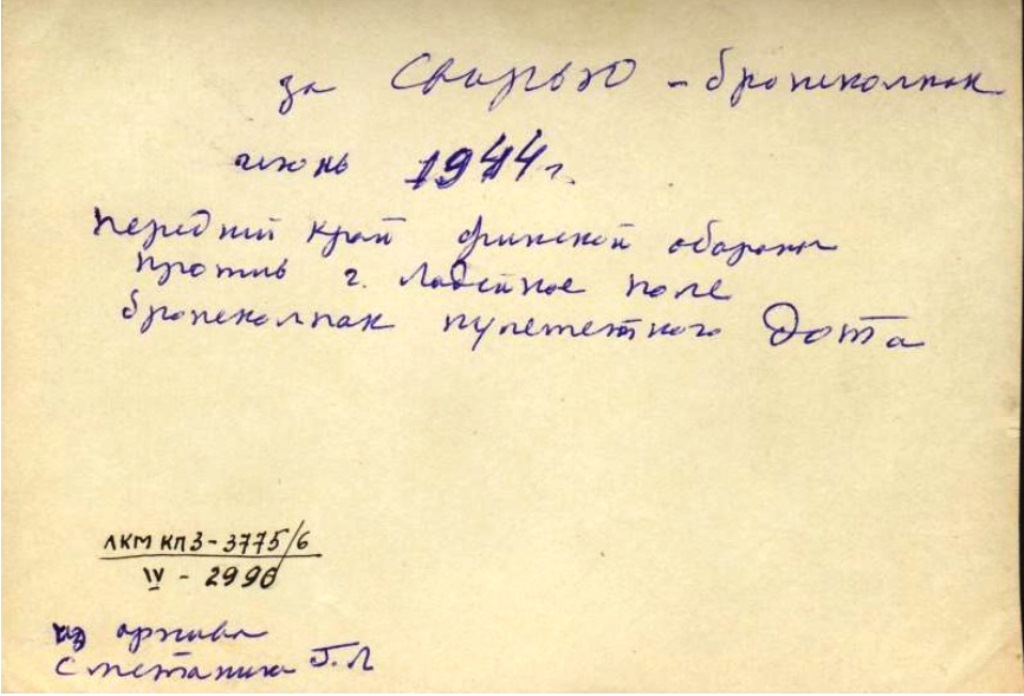 за Свирью - бронеколпак
июнь 1944 г.
передний край финской обороны
против г. Лодейное поле
бронеколпак пулеметного Дота
ЛКМ КП3-3775/6
IV - 2990
из архива
Сметанина Г.Л